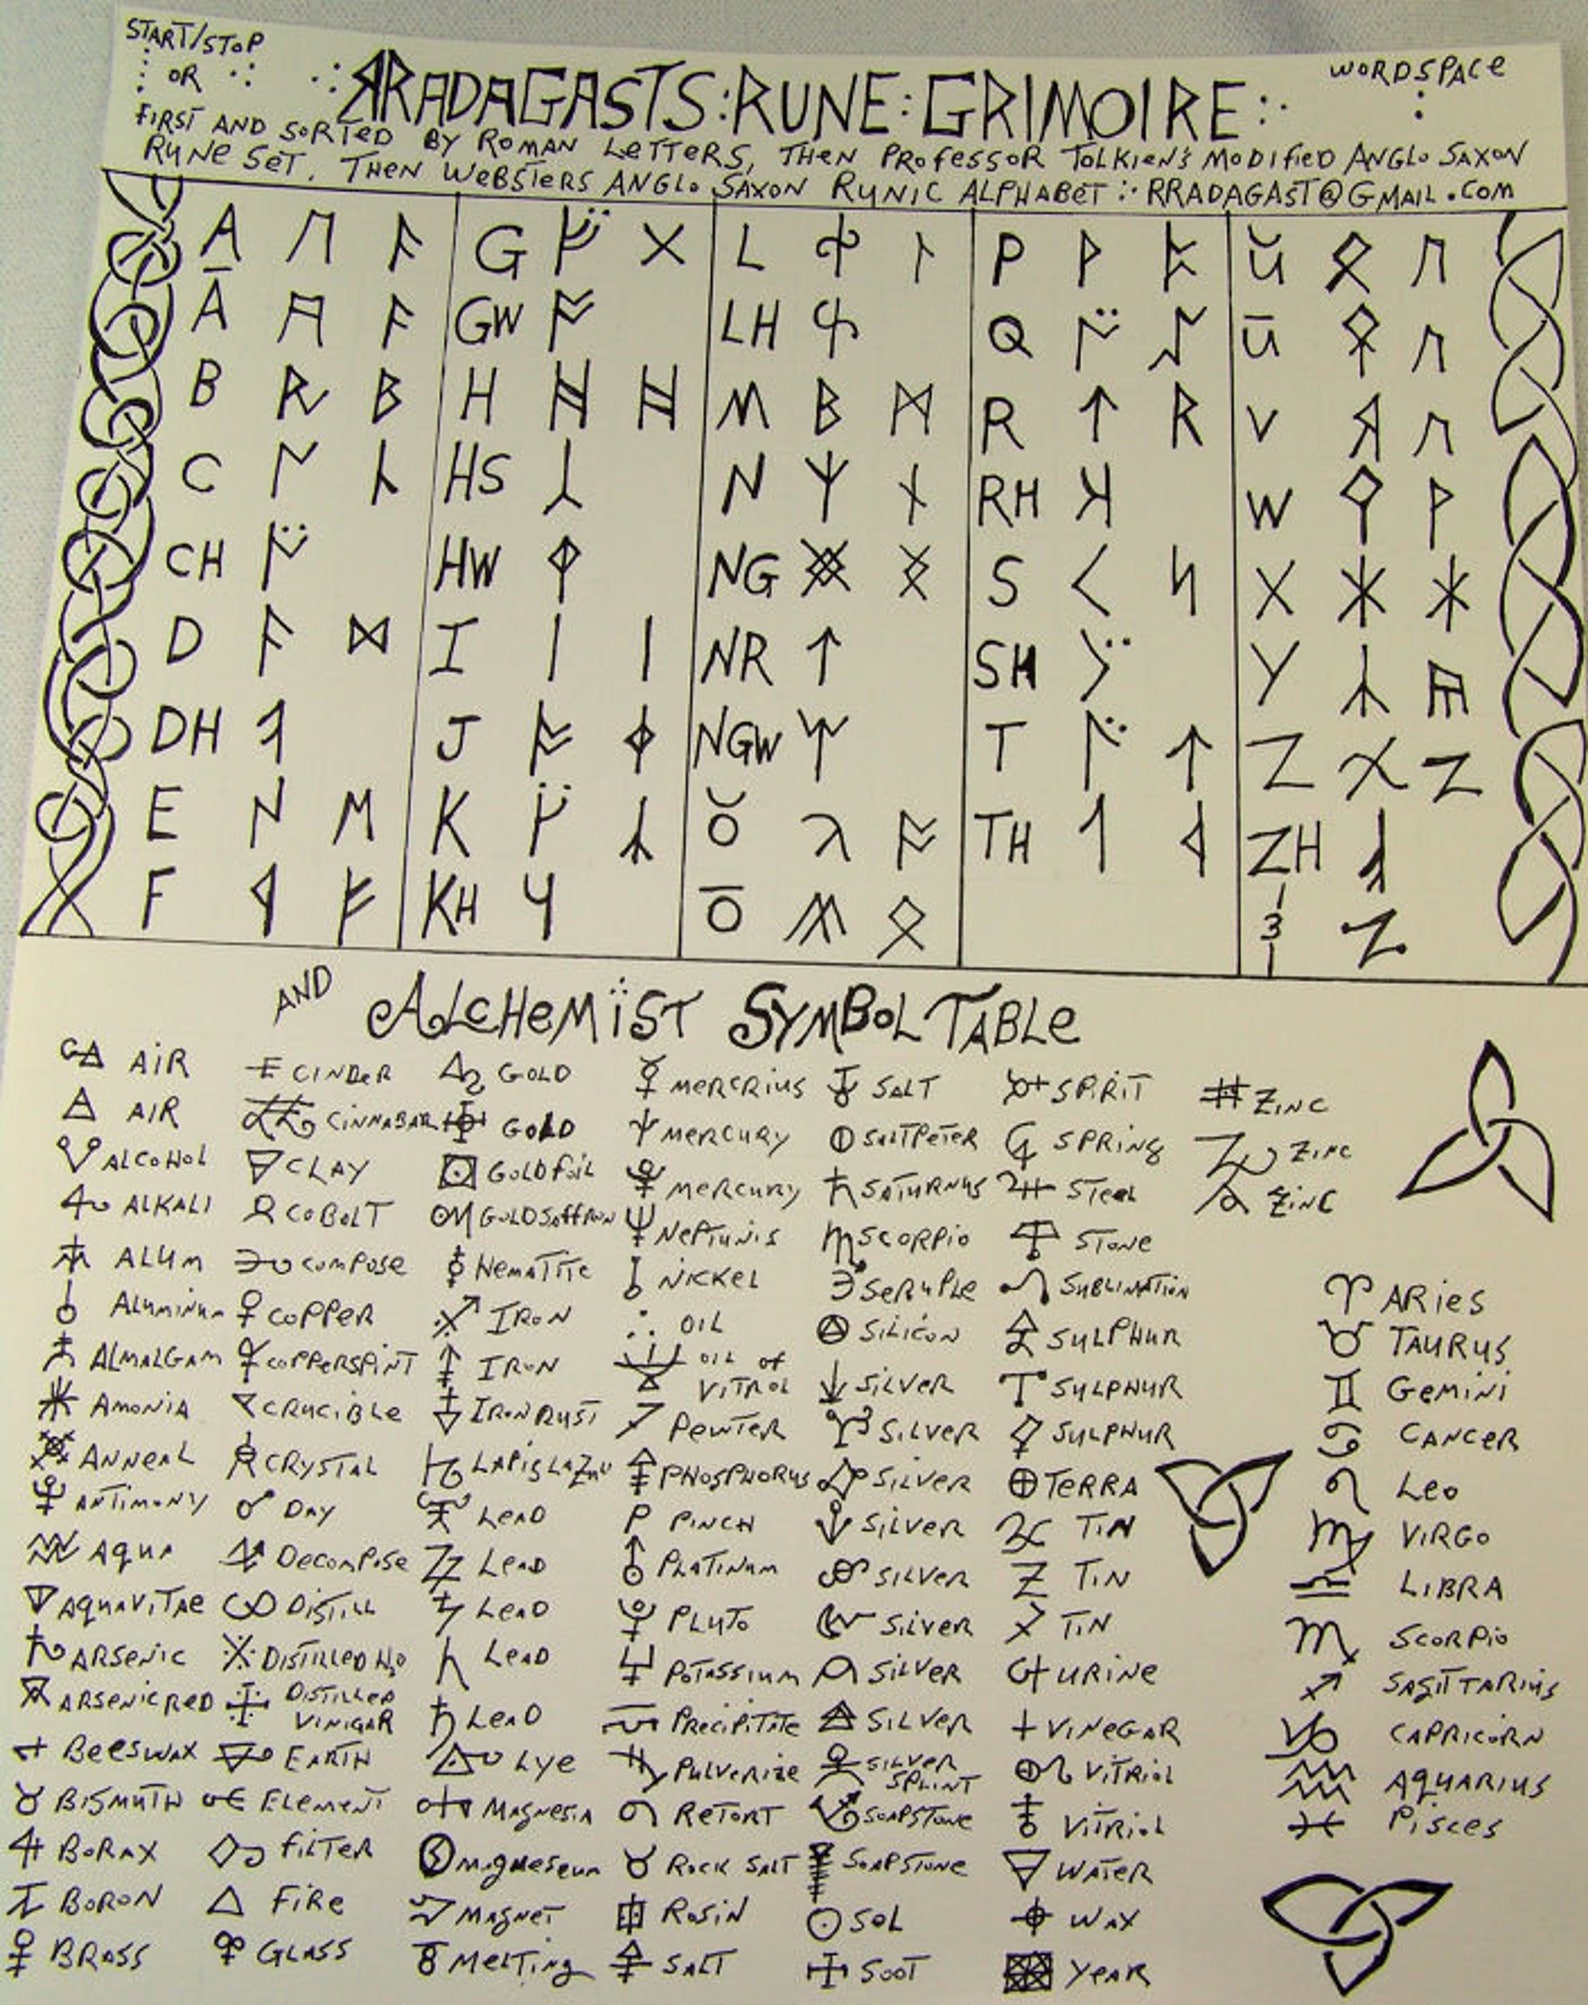 START/STOP
OR
RRADAGASTS:RUNE:GRIMOIRE
WORDSPACE
FIRST AND SORTED BY ROMAN LETTERS, THEN PROFESSOR TOLKIEN'S MODIFIED ANGLO SAXON
RUNE SET. THEN WEBSTERS ANGLO SAXON RUNIC ALPHABET RRADAGAST@GMAIL.COM
A G L P Ŭ
Ā GW LH Q Ū
B H M R V
C HS N RH W
CH HW NG S X
D I NR SH Y
DH J NGW T Z
E K Ŏ TH ZH
F KH Ō 3
AND ALCHEMIST SYMBOL TABLE
AIR CINDER GOLD MERCRIUS SALT SPIRIT ZINC
AIR CINNABAR GOLD MERCURY SALTPETER SPRING ZINC
ALCOHOL CLAY GOLDFOIL MERCURY SATURNUS STEEL ZINC
ALKALI COBOLT GOLDSAFFRON NEPTUNIS SCORPIO STONE
ALUM COMPOSE HEMATITE NICKEL SERUPLE SUBLIMATION ARIES
ALUMINUM COPPER IRON OIL SILICON SULPHUR TAURUS
ALMALGAM COPPERSPINT IRON OIL OF VITROL SILVER SULPHUR GEMINI
AMONIA CRUCIBLE IRONRUST PEWTER SILVER SULPHUR CANCER
ANNEAL CRYSTAL PHOSPHORUS SILVER TERRA LEO
ANTIMONY DAY LEAD P PINCH SILVER TIN VIRGO
AQUA DECOMPOSE LEAD PLATINUM SILVER TIN LIBRA
AQUAVITAE DISTILL LEAD PLUTO SILVER TIN SCORPIO
ARSENIC DISTILLED H2O LEAD POTASSIUM SILVER URINE SAGITTARIUS
ARSENICRED DISTILLED VINIGAR LEAD PRECIPITATE SILVER VINEGAR CAPRICORN
BEESWAX EARTH LYE PULVERIZE SILVER SPLINT VITRIOL AQUARIUS
BISMUTH ELEMENT MAGNESIA RETORT SOAPSTONE VITRIOL PISCES
BORAX FILTER MAGNESEUM ROCK SALT SOAPSTONE WATER
BORON FIRE MAGNET ROSIN SOL WAX
BRASS GLASS MELTING SALT SOOT YEAR